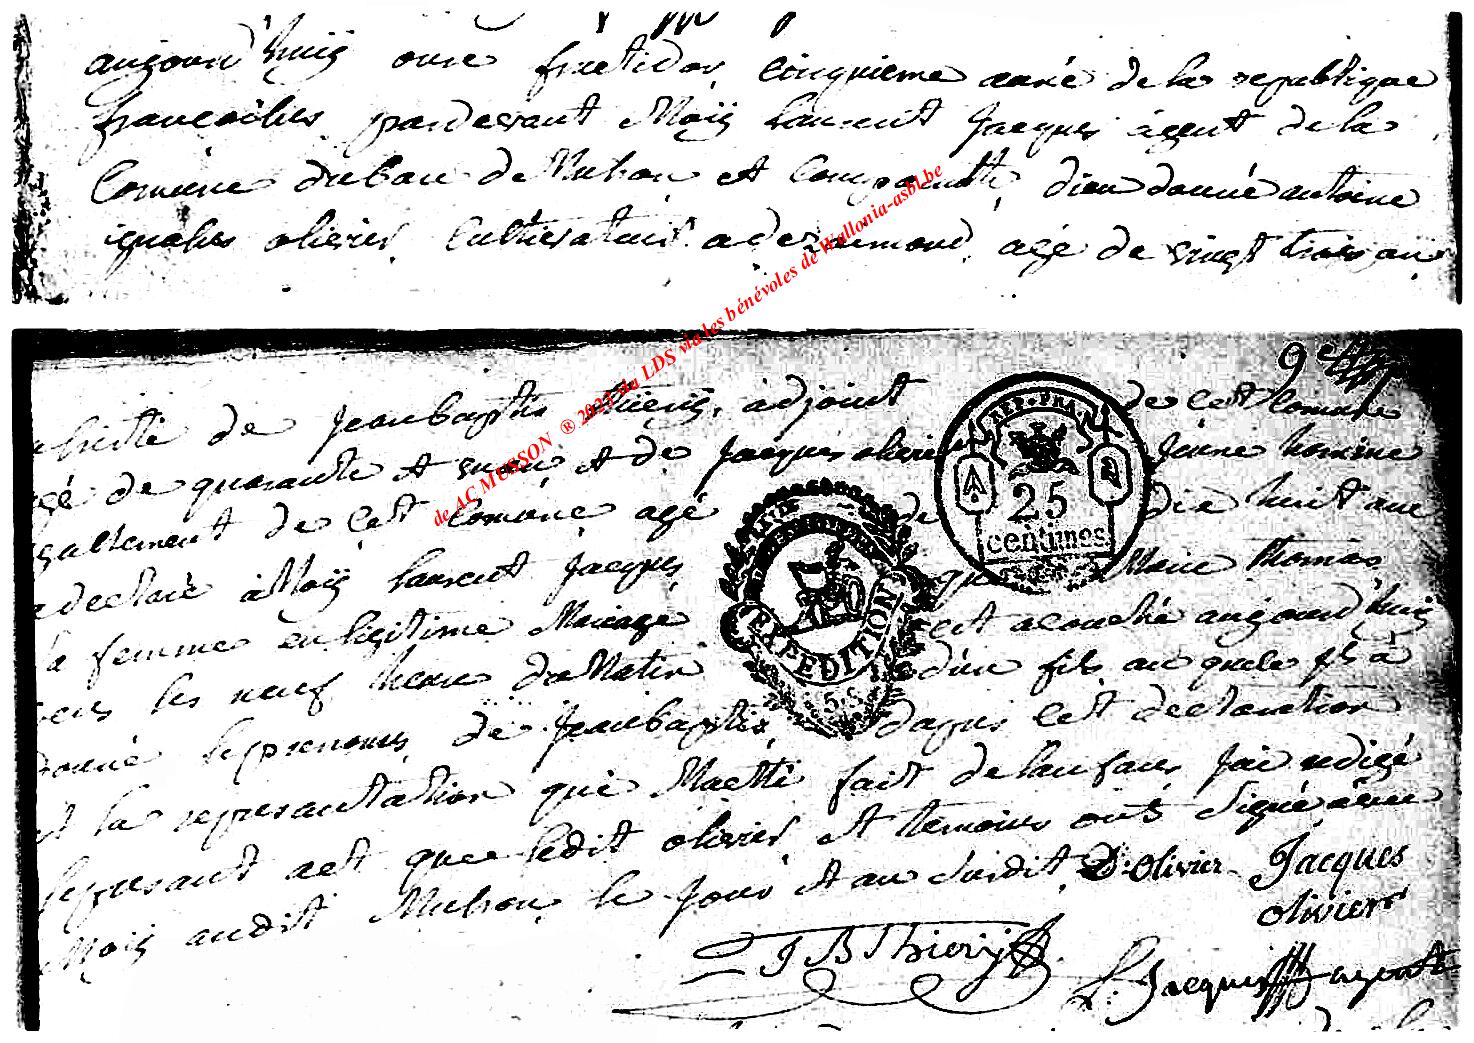 aujourd'huij onze fructidor cinquieme année de la republique
francoises pardevant Moij Laurent Jacques agent de la
Comune du ban de Muhon et comparutte dieudonné antoine
ignales olivier, cultivateur a deramond, agé de vingt trois an
9e
de Jeanbaptis thierij, adjoint de cest Comune
agé de quarante et un an et de Jacques olivier Jeune homme
egallement de cest Comune agé de dix huit ans
a declaré à Moij laurent Jacques que Marie Thomas
la femme en legitime Mariage est acouché aujourd'huij
vers les neuf heure du Matin d'un fils au quele jls à
donné le prenoms de Jeanbaptis, dapres cest declaration
et la represantation que Maetté fait de lanfans jai redigé
le present act que ledit olivier et temoins onts Signé avec
Moij audit Muhon le jour et an Susdit D. Olivier Jacques
olivier
J B Thierij
L. Jacques agent
REP. FRA.
25
centimes
EXPEDITION
de AC MUSSON ® 2021 du LDS via les bénévoles de Wallonia-asbl.be